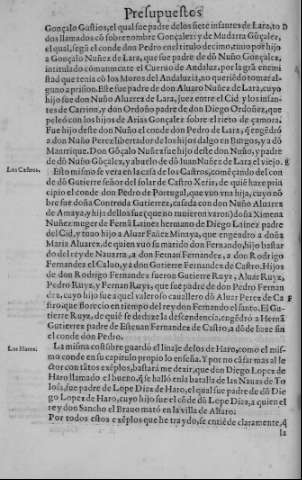 Presupuestos
Gonçalo Gustios, el qual fue padre de los siete infantes de Lara, to D
dos llamados cõ sobrenombre Gonçalez: y de Mudarra Gõçalez,
el qual, segũ el conde don Pedro en el titulo decimo, tuuo por hijo
a Gonçalo Nuñez de Lara, que fue padre de dõ Nuño Gonçalez,
intitulado comunmente el Cueruo de Andaluz, por la grã enemi
stad que tenia cõ los Moros del Andaluzia, no queriẽdo tomar al-
guno a prision. Este fue padre de don Aluaro Nuñez de Lara, cuyo
hijo fue don Nuño Aluarez de Lara, juez entre el Cid y los infan-
tes de Carrion, y don Ordoño padre de don Diego Ordoñez, que
peleó con los hijos de Arias Gonçalez sobre el rieto de çamora.
Fue hijo deste don Nuño el conde don Pedro de Lara, q̃ engẽdró
a don Nuño Perez libertador de los hijos dalgo en Burgos, y a dõ
Manrrique. Don Gõçalo Nuñez fue hijo deste don Nuño, y padre
de dõ Nuño Gõçalez, y abuelo de dõ Iuan Nuñez de Lara el viejo. E
Los Castros.
Esto mismo se vera en la casa de los Castros, començãdo del con
de dõ Gutierre señor del solar de Castro Xeriz, de quiẽ haze prin
cipio el conde don Pedro de Portugal, que tuuo vna hija, cuyo nõ
bre fue doña Controda Gutierrez, casada con don Nuño Aluarez
de Amaya, y hija dellos fue (que no tuuieron varon) doña Ximena
Nuñez muger de Fernã Lainez hermano de Diego Lainez padre
del Cid, y tuuo hijo a Aluar Faiñez Minaya, que engendro a doña
Maria Aluarez, de quien vuo su marido don Fernando, hijo bastar
do del rey de Nauarra, a don Fernan Fernandez, a don Rodrigo
Fernandez el Caluo, y a don Gutierre Fernandez de Castro. Hijos
de don Rodrigo Fernandez fueron Gutierre Ruyz, Aluar Ruyz,
Pedro Ruyz, y Fernan Ruyz, que fue padre de don Pedro Fernan
dez, cuyo hijo fue aquel valeroso cauallero dõ Aluar Perez de Ca F
stro que florecio en tiempo del rey don Fernando el santo. El Gu-
tierre Ruyz, de quiẽ se deduze la descendencia, engẽdró a Hernã
Gutierrez padre de Esteuan Fernandez de Castro, a dõde haze fin
el conde don Pedro.
Los Haros.
La misma costũbre guardó el linaje de los de Haro, como el mis-
mo conde en su capitulo propio lo enseña. Y por no cãsar mas al le
ctor con tãtos exẽplos, bastará me dezir, que don Diego Lopez de
Haro llamado el bueno, q̃ se halló en la batalla de las Nauas de To
losa, fue padre de Lope Diaz de Haro, el qual fue padre de dõ Die
go Lopez de Haro, cuyo hijo fue el cõde dõ Lope Diaz, a quien el
rey don Sancho el Brauo mató en la villa de Alfaro.
Por todos estos exẽplos que he traydo, se entiẽde claramente, q̃
la